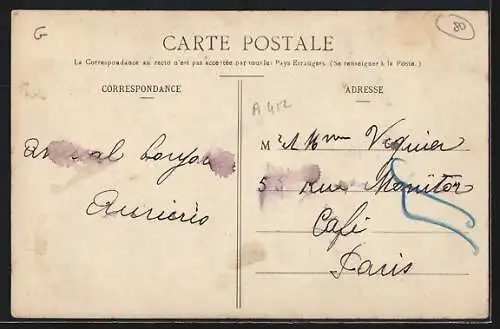 G
80
CARTE POSTALE
La Correspondance au recto n'est pas acceptée par tous les Pays Étrangers. (Se renseigner à la Poste.)
CORRESPONDANCE
ADRESSE
A 412
M et Mme Viguier
amical bonjour
55 Rue Monitor
Café
Paris